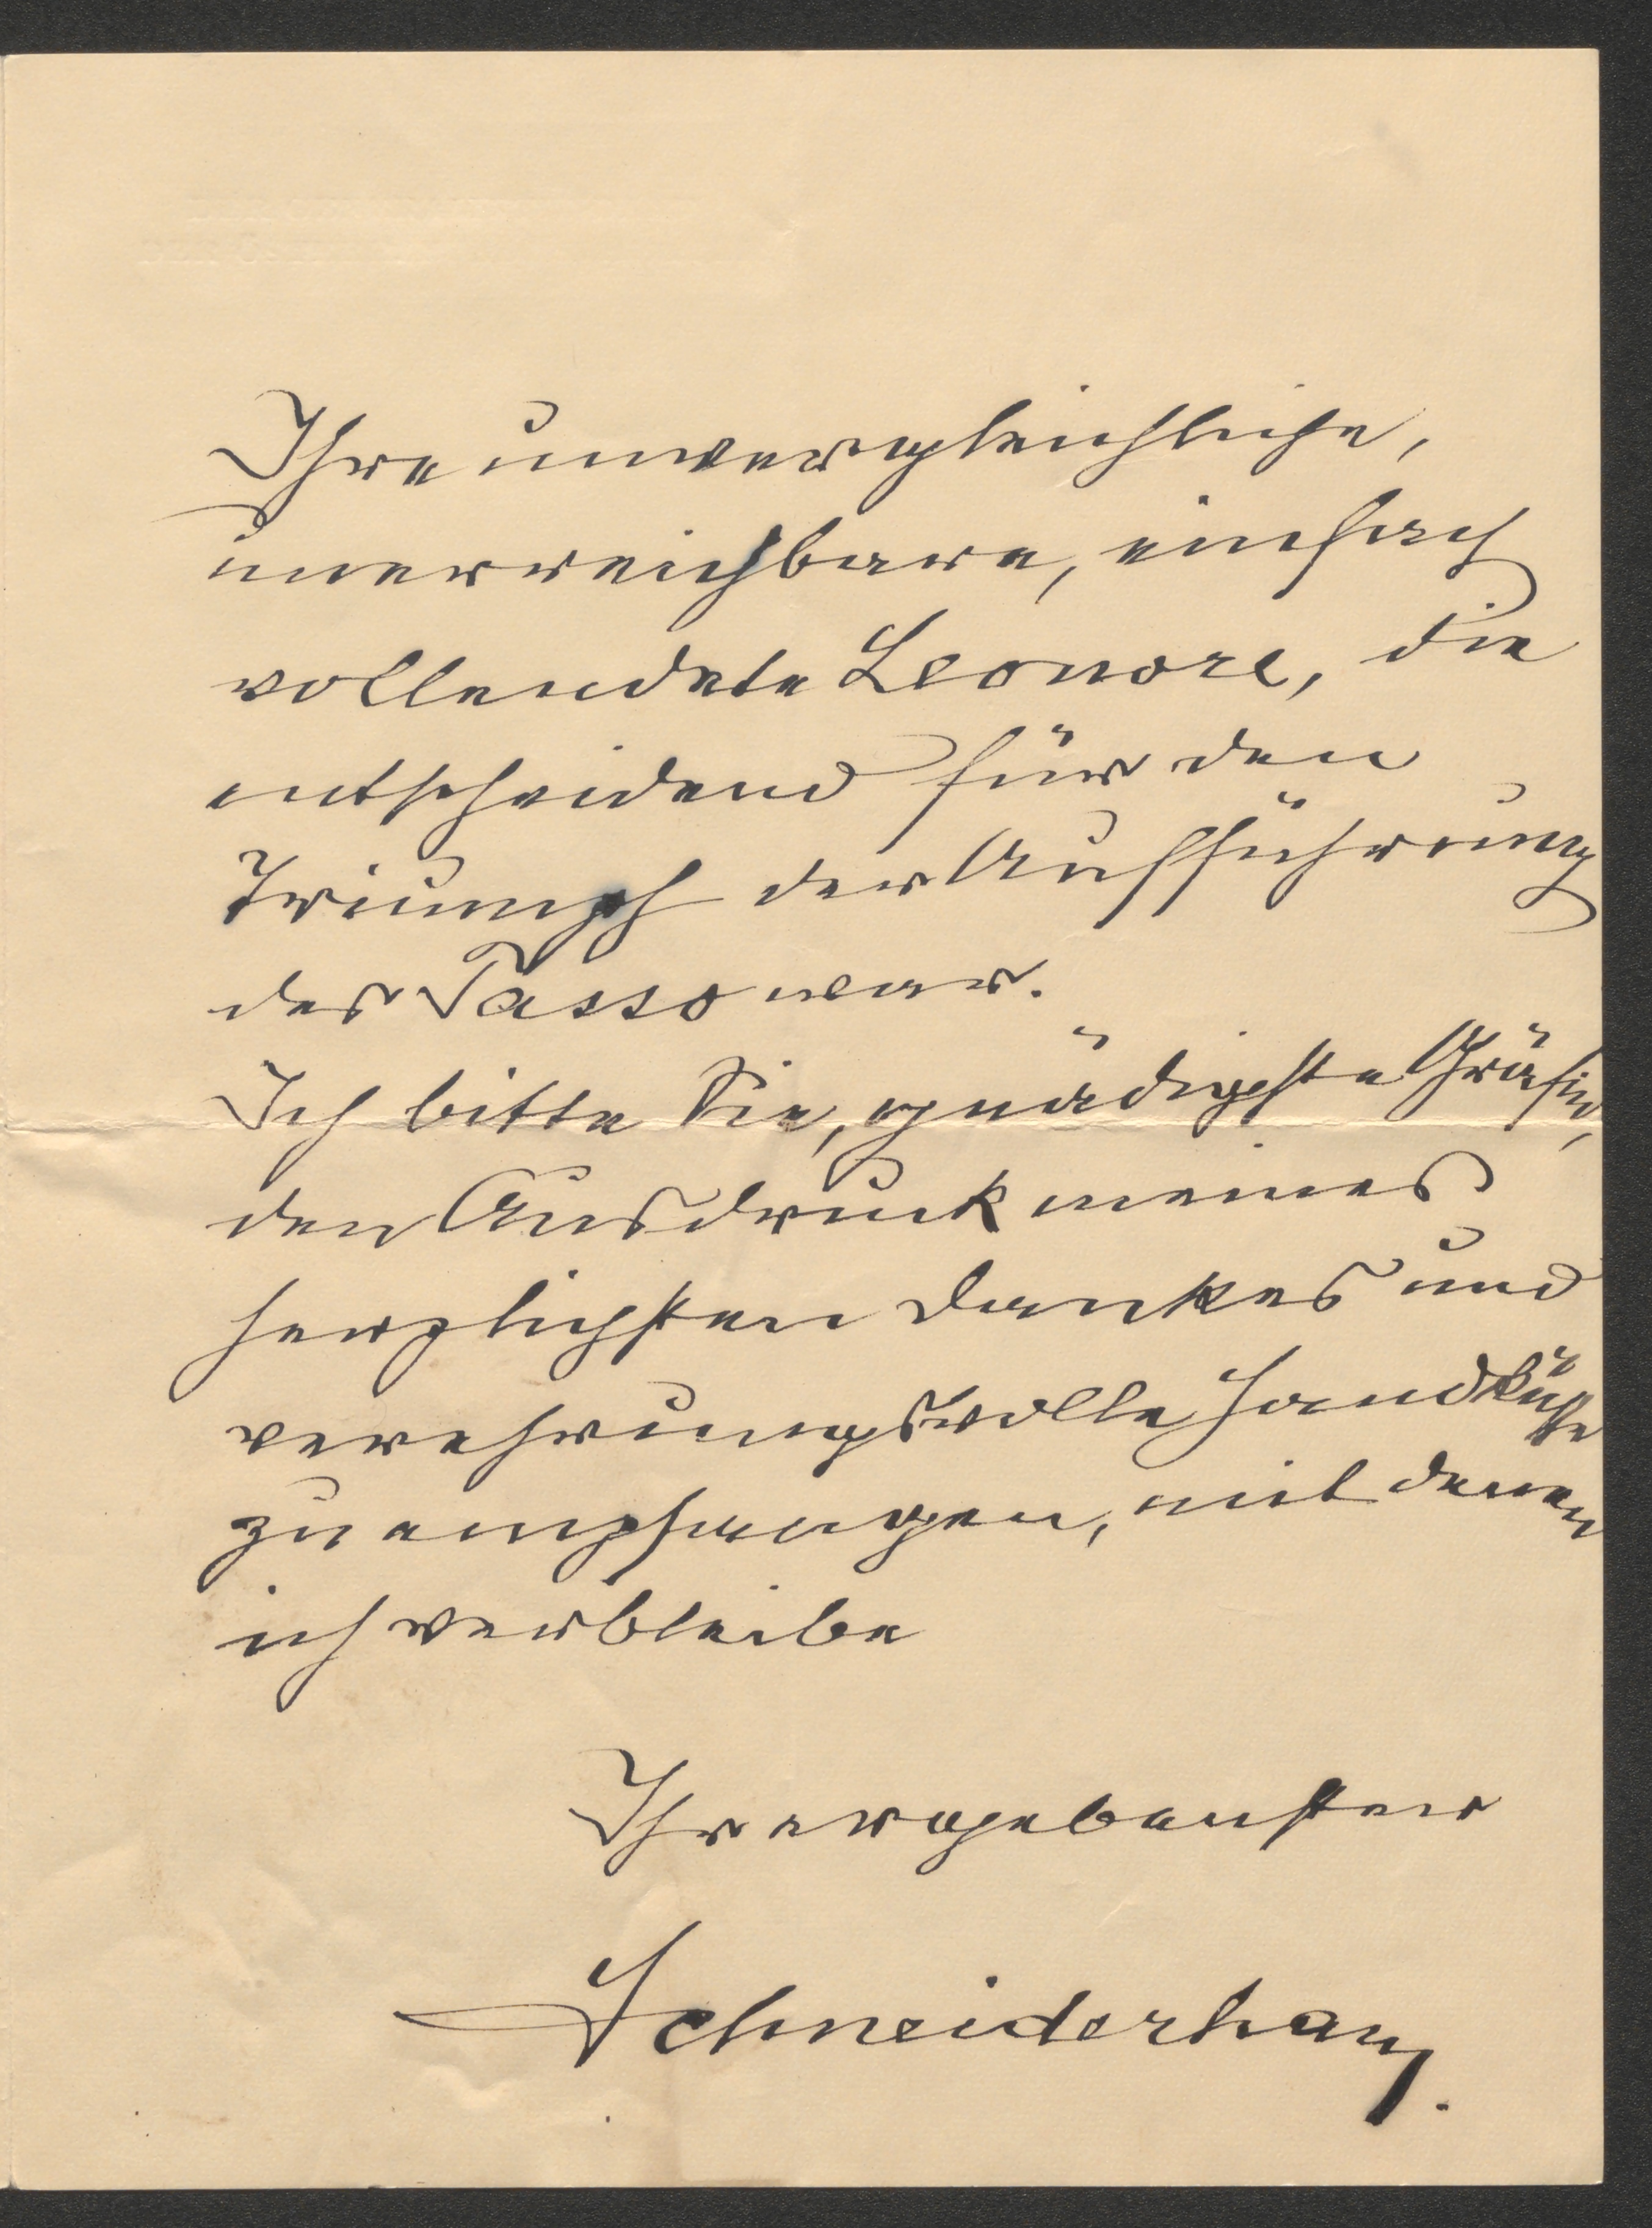 Ihre unvergleichliche,
unerreichbare, einfach
vollendete Leonore, die
entscheidend für den
Triumph der Aufführung
des Tasso war.
Ich bitte Sie, gnädigste Gräfin,
den Ausdruck meines
herzlichsten Dankes und
verehrungsvolle Handküsse
zu empfangen, mit denen
ich verbleibe
Ihr ergebenster
Schneiderhan.